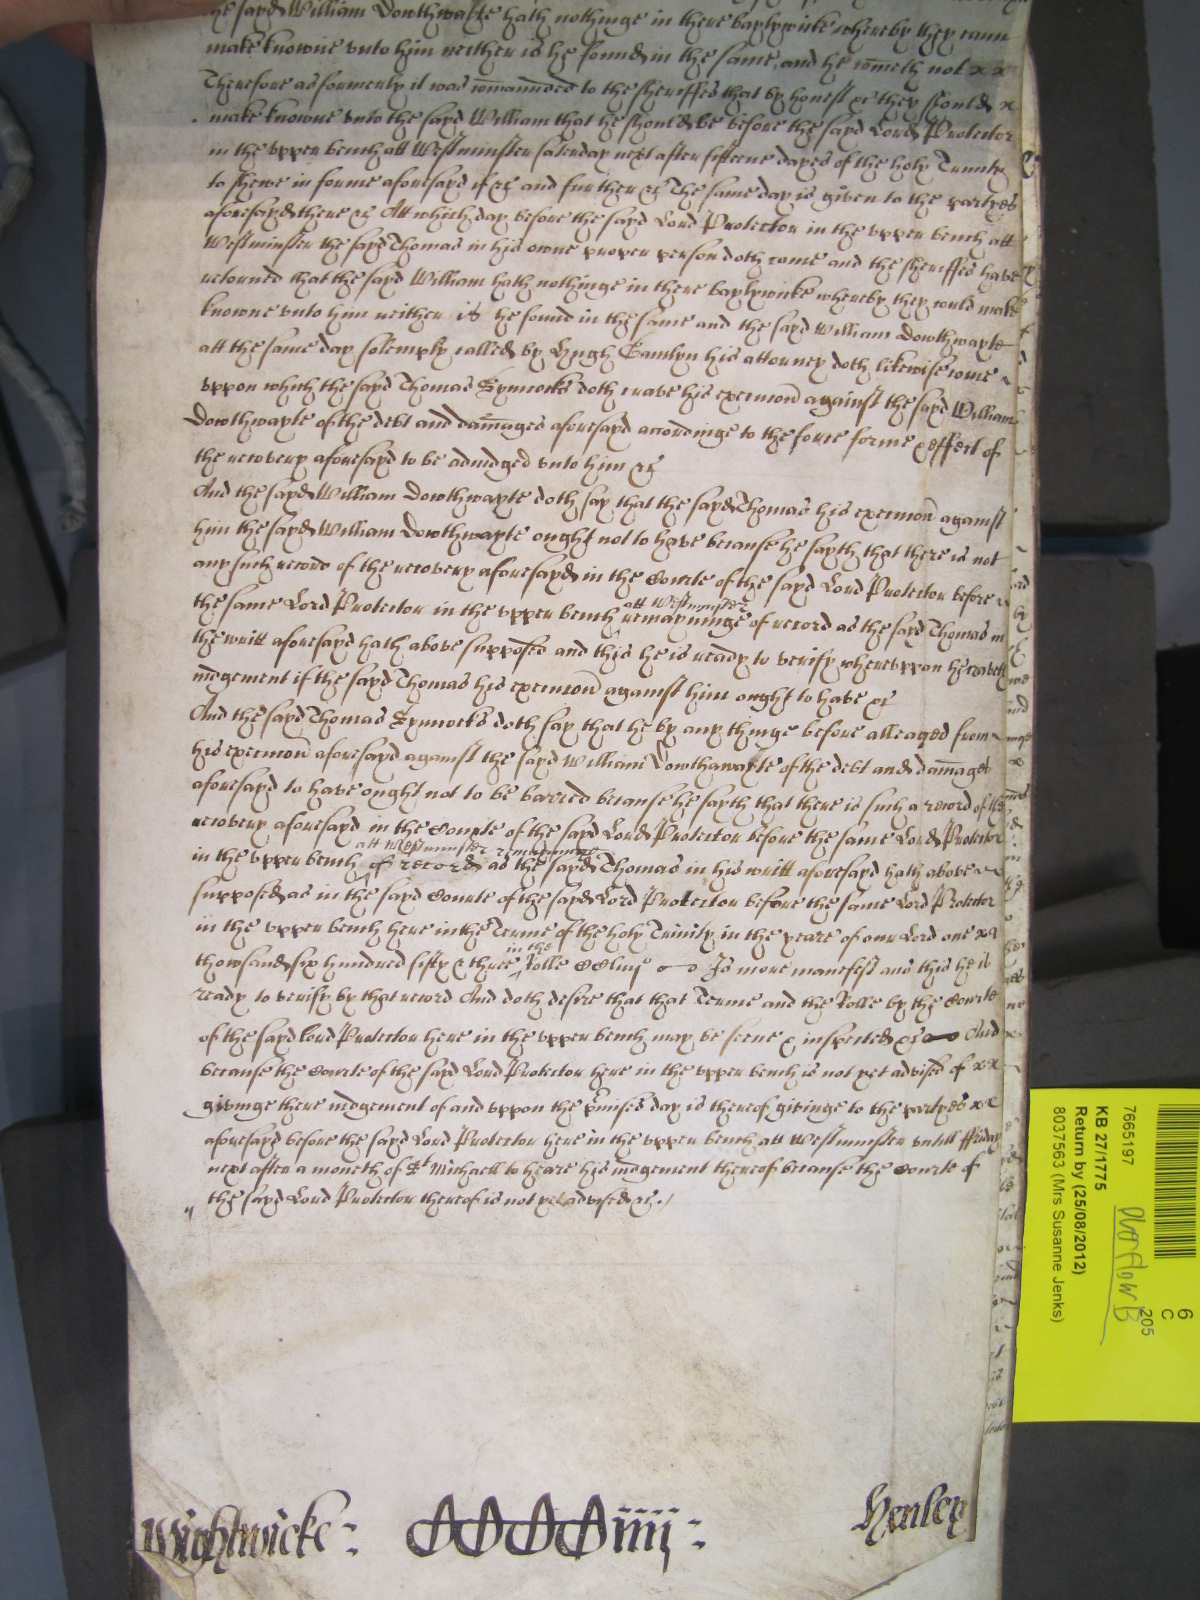 the sayd William Dowthwayte hath nothinge in there baylywicke whereby they cann
make knowne vnto him neither is he found in the same, and he cometh not
Therefore as formerly it was comaunded to the sheriffes that by honest &c they should
make knowne vnto the sayd William that he should be before the sayd Lord Protector
in the vpper bench att Westminster saterday next after fifteene dayes of the holy Trinity
to shewe in forme aforesayd if &c and further &c The same day is given to the partyes
aforesayd there &c Att which day before the sayd Lord Protector in the vpper bench att
Westminster the sayd Thomas in his owne proper person doth come and the sheriffes have
returned that the sayd William hath nothinge in there baylywicke whereby they could make
knowne vnto him neither is he found in the same and the sayd William Dowthwayte
att the same day solemply called by Hugh his attorney doth likewise come
vppon which the sayd Thomas Symcocks doth crave his execucion against the sayd William
Dowthwayte of the debt and damages aforesayd accordinge to the force forme & effect of
the recovery aforesayd to be adiudged vnto him &c
And the sayd William Dowthwayte doth say that the sayd Thomas his execucion against
him the sayd William Dowthwayte ought not to have because he sayth that there is not
any such record of the recovery aforesayd in the Courte of the sayd Lord Protector before
the same Lord Protector in the vpper bench att Westminster remayninge of record as the sayd Thomas in
the writt aforesayd hath above supposed and this he is ready to verify wherevppon he craveth
iudgement if the sayd Thomas his execucion against him ought to have &c
And the sayd Thomas Symcocks doth say that he by any thinge before alleaged from
his execucion aforesayd against the sayd William Dowthawayte of the debt and damages
aforesayd to have ought not to be barred because he sayth that there is such a record of the
recovery aforesayd in the Courte of the sayd Lord Protector before the same Lord Protector
in the vpper bench att Westminster remayninge of record as the sayd Thomas in his writt aforesayd hath above
supposed as in the sayd Courte of the sayd Lord Protector before the same Lord Protector
in the vpper bench here in the Terme of the holy Trinity in the yeare of our Lord one
thowsand six hundred fifty & three in the Rolle Is more manefest and this he is
ready to verify by that record And doth desire that that Terme and the Rolle by the Courte
of the sayd lord Protector here in the vpper bench may be seene & inspected &c And
because the Courte of the sayd Lord Protector here in the vpper bench is not yet advised of
givinge there iudgement of and vppon the pmises day is thereof givinge to the partyes
aforesayd before the sayd Lord Protector here in the vpper bench att Westminster vntill ffriday
next after a moneth of St Michaell to heare his iudgement thereof because the Courte of
the sayd Lord Protector thereof is not yet advised &c.
Wightwicke: CCCCiiij: Henley
7665197
KB 27/1775
Return by (25/08/2012)
8037563 (Mrs Susanne Jenks)
Overflow B
205
6
C